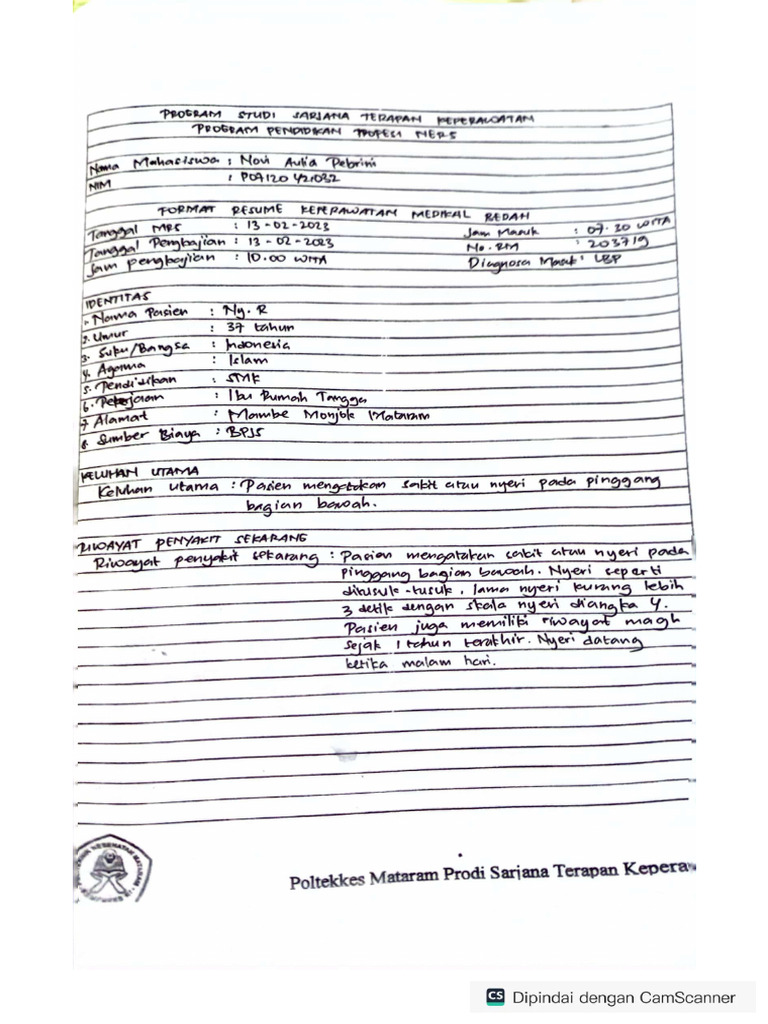 PROGRAM STUDI SARJANA TERAPAN KEPERAWATAN
PROGRAM PENDIDIKAN PROFESI NERS
Nama Mahasiswa : Novi Aulia Pebrini
NIM : P07120421032
FORMAT RESUME KEPERAWATAN MEDIKAL BEDAH
Tanggal MRS : 13-02-2023 Jam Masuk : 07.30 WITA
Tanggal Pengkajian : 13-02-2023 No. RM : 203719
Jam pengkajian : 10.00 WITA Diagnosa Masuk : LBP
IDENTITAS
1. Nama Pasien : Ny. R
2. Umur : 37 tahun
3. Suku/Bangsa : Indonesia
4. Agama : Islam
5. Pendidikan : SMK
6. Pekerjaan : Ibu Rumah Tangga
7. Alamat : Mambe Monjok Mataram
8. Sumber Biaya : BPJS
KELUHAN UTAMA
Keluhan utama : Pasien mengatakan sakit atau nyeri pada pinggang
bagian bawah.
RIWAYAT PENYAKIT SEKARANG
Riwayat penyakit sekarang : Pasien mengatakan sakit atau nyeri pada
pinggang bagian bawah. Nyeri seperti
ditusuk-tusuk, lama nyeri kurang lebih
3 detik dengan skala nyeri diangka 4.
Pasien juga memiliki riwayat magh
sejak 1 tahun terakhir. Nyeri datang
ketika malam hari.
Poltekkes Mataram Prodi Sarjana Terapan Kepera
CS Dipindai dengan CamScanner